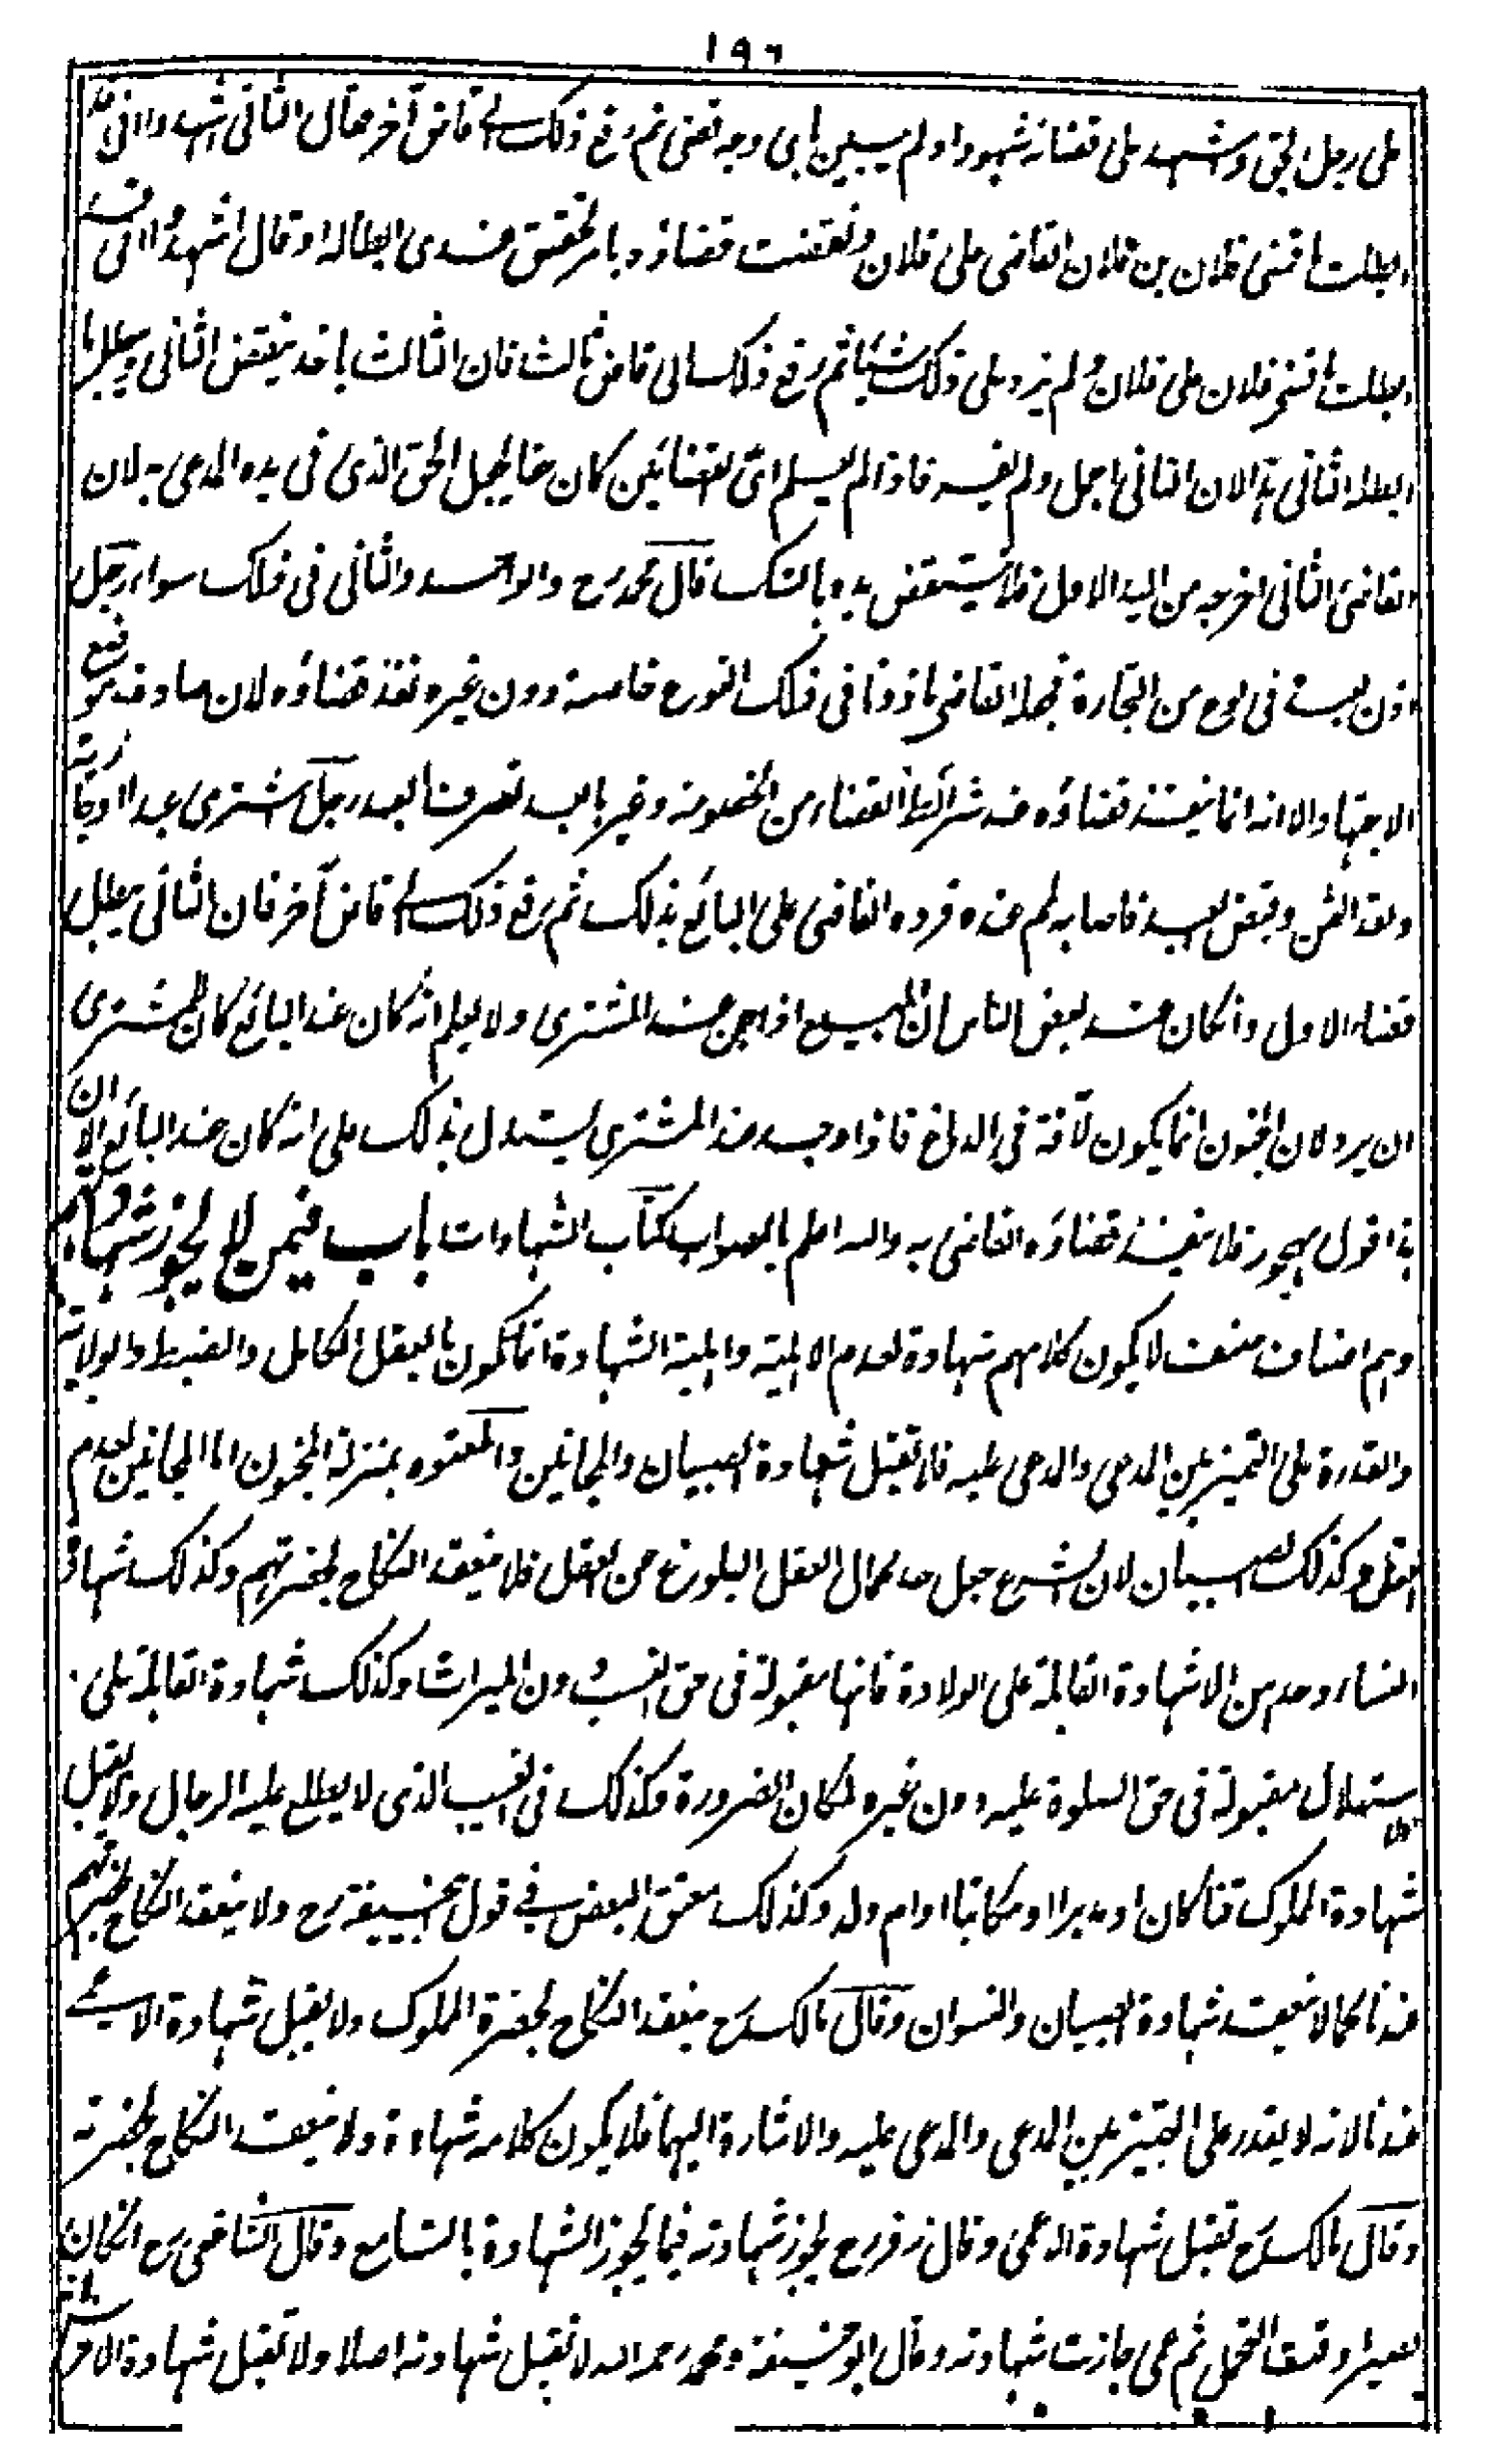 ١٩٦
على رجل بحق وشهد على قضائه شهودا ولم يبين باى وجه قضى ثم رفع ذلك الى قاض آخر فقال الثانى اشهدوا انى قد
ابطلت ما قضى فلان بن فلان القاضى على فلان ونقضت قضاؤه بامر تحقق عندى ابطاله او قال اشهدوا انى قد
ابطلت ما قضى فلان على فلان ولم يزد على ذلك شيئا ثم رفع ذلك الى قاض ثالث فان الثالث ينقض الثانى ويبطل ما
ابطله الثانى لان الثانى اجمل ولم يفسر فاذا لم يعلم اى القضائين كان خطأ يجعل الحق الذى فى يده المدعى به لان
القاضى الثانى اخرجه من اليد الاول فلا ينقض يده بالشك قال محمد رح والواحد والثانى فى ذلك سواء رجل
اذن لعبده فى نوع من التجارة فجعله القاضى ماذونا فى ذلك النوع خاصة دون غيره نفذ قضاؤه لانه صادف موضع
الاجتهاد الا انه انما ينفذ قضاؤه عند شرائط القضاء من الخصومة وغيرها بعد تصرف العبد رجل اشترى عبدا او جارية
ونقد الثمن وقبض العبد فاصابه لمم عنده فرده القاضى على البائع بذلك ثم رفع ذلك الى قاض آخر فان الثانى يبطل
قضاء الاول وان كان عند بعض الناس ان المبيع اذا جن عند المشترى ولا يعلم انه كان عند البائع كان للمشترى
ان يرد لان الجنون انما يكون لآفة فى الدماغ فاذا وجد عند المشترى يستدل بذلك على انه كان عند البائع الا ان
هذا قول مهجور فلا ينفذ قضاؤه القاضى به والله اعلم بالصواب كتاب الشهادات باب فيمن لا يجوز شهادتهم
وهم اصناف صنف لا يكون كلامهم شهادة لعدم الاهلية واهلية الشهادة انما تكون بالعقل الكامل والضبط والولاية
والقدرة على التمييز بين المدعى والمدعى عليه فلا تقبل شهادة الصبيان والمجانين والمعتوه بمنزلة المجنون اما المجانين لعدم
العقل وكذلك الصبيان لان الشرع جعل حد كمال العقل البلوغ عن العقل فلا ينعقد النكاح بحضرتهم وكذلك شهادة
النساء وحدهن الا شهادة القابلة على الولادة فانها مقبولة فى حق النسب دون الميراث وكذلك شهادة القابلة على
الاستهلال مقبولة فى حق الصلوة عليه دون غيره لمكان الضرورة وكذلك فى العيب الذى لا يطلع عليه الرجال ولا تقبل
شهادة المملوك قنا كان او مدبرا او مكاتبا او ام ولد وكذلك معتق البعض فى قول ابيحنيفة رح ولا ينعقد النكاح بحضرتهم
عندنا كما لا ينعقد بشهادة الصبيان والنسوان وقال مالك رح ينعقد النكاح بحضرة المملوك ولا يقبل شهادة الاعمى
عندنا لانه لا يقدر على التمييز بين المدعى والمدعى عليه والاشارة اليهما فلا يكون كلامه شهادة ولا ينعقد النكاح بحضرته
وقال مالك رح تقبل شهادة الاعمى وقال زفر رح يجوز شهادته فيما يجوز الشهادة بالتسامع وقال الشافعى رح ان كان
بصيرا وقت التحمل ثم عمى جازت شهادته وقال ابو حنيفة ومحمد رحمه الله لا تقبل شهادته اصلا ولا تقبل شهادة الاخرس